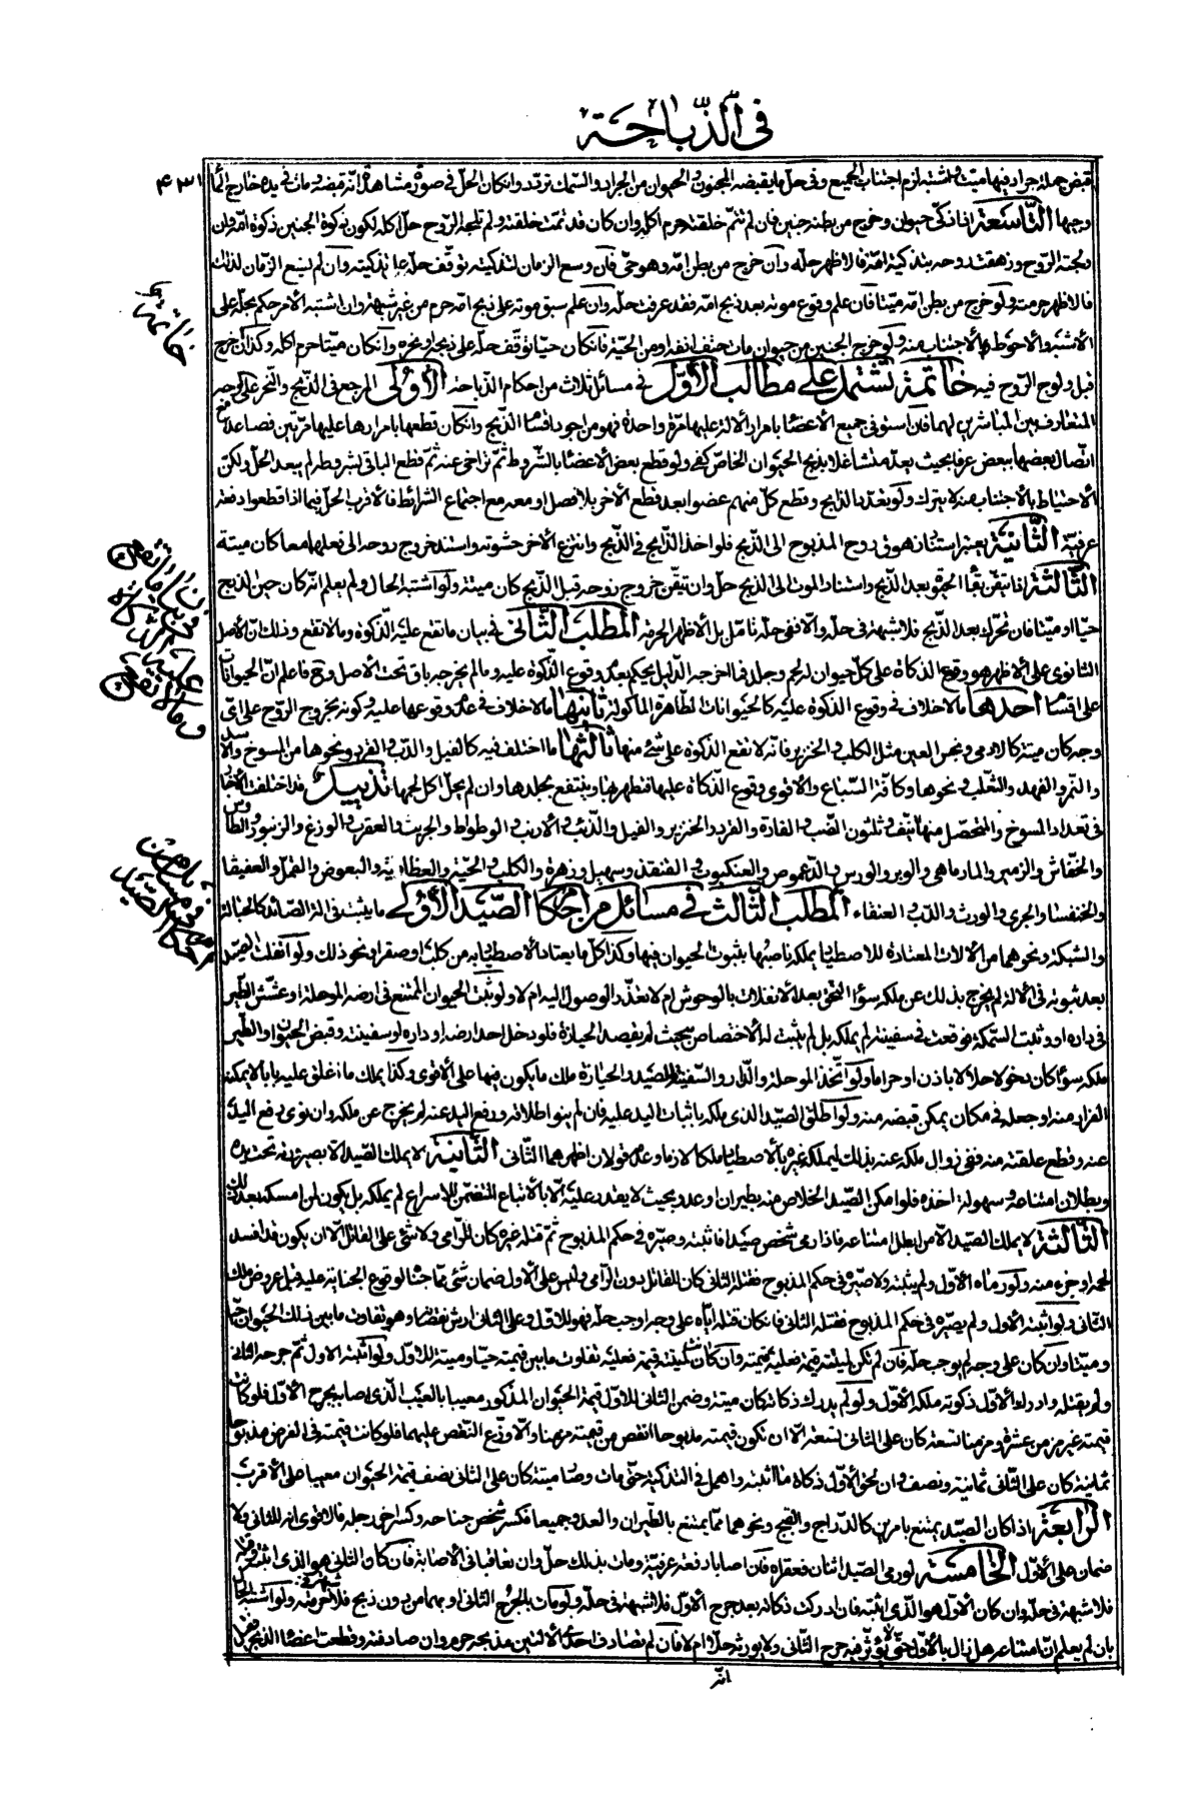 في الذباحة
٤٣١
قبض جملة جراد فيها ميت واشتبه لزم اجتناب الجميع وفي حل ما يقبضه المجنون والحيوان من الجراد والسمك تردد وان كان الحل في صورة مشاهدة انه قبضه ومات في يده خارج الماء
وجيها التاسعة اذا ذكي حيوان وخرج من بطنه جنين فان لم تتم خلقته حرم اكله وان كان قد تمت خلقته ولم تلجه الروح حل اكله لكون ذكوة الجنين ذكوة امه وان
ولجته الروح وزهقت روحه بتذكية امه فالاظهر حله وان خرج من بطن امه وهو حي فان وسع الزمان لتذكيته توقف حله على تذكيته وان لم يتسع الزمان لذلك
فالاظهر حرمته ولو خرج من بطن امه ميتا فان علم وقوع موته بعد ذبح امه فقد عرفت حله وان علم سبق موته على ذبح امه حرم من غير شبهة وان اشتبه الامر حكم بحله على
الاشبه والاحوط الاجتناب منه ولو خرج الجنين من حيوان مات حتف انفه او من الحية فان كان حيا توقف حله على ذبحه او نحره وان كان ميتا حرم اكله وكذا ان خرج
قبل ولوج الروح فيه خاتمة تشتمل على مطالب الأول في مسائل ثلاث من احكام الذباحة الأولى المرجع في الذبح والنحر على الوجه
المتعارف بين المباشرين لهما فان استوفى جميع الاعضاء بامرار الالة عليها مرة واحدة فهو من اجود اقسام الذبح وان كان قطعها بامرارها عليها مرتين فصاعدا مع
اتصال بعضها ببعض عرفا بحيث يعد متشاغلا بذبح الحيوان الخاص كفى ولو قطع بعض الاعضاء بالشروط ثم تراخى عنه ثم قطع الباقي بشروطه لم يبعد الحل ولكن
الاحتياط بالاجتناب منه لا يترك ولو تعدد الذابح وقطع كل منهم عضوا بعد قطع الاخر بلا فصل او معه مع اجتماع الشرائط فالاقرب الحل فيما اذا قطعوا دفعة
عرفية الثانية يعتبر استناد زهوق روح المذبوح الى الذبح فلو اخذ الذابح في الذبح وانتزع الاخر حشوته واستند خروج روحه الى فعلهما معا كان ميتة
الثالثة اذا تيقن بقاء الحيوة بعد الذبح واستناد الموت الى الذبح حل وان تيقن خروج روحه قبل الذبح كان ميتة ولو اشتبه الحال ولم يعلم انه كان حين الذبح
حيا او ميتا فان تحرك بعد الذبح فلا شبهة في حله والا ففي حله تامل بل الاظهر الحرمة المطلب الثاني في بيان ما تقع عليه الذكوة وما لا تقع وذلك ان الاصل
الثانوي على الاظهر هو وقوع الذكاة على كل حيوان لحم وجلد فما اخرجه الدليل يحكم بعدم وقوع الذكوة عليه وما لم يخرجه باق تحت الاصل وح فاعلم ان الحيوانات
على اقسام احدها ما لا خلاف في وقوع الذكوة عليه كالحيوانات الطاهرة الماكولة ثانيها ما لا خلاف في عدم وقوعها عليه وكونه بخروج الروح على اي
وجه كان ميتة كالادمي ونجس العين مثل الكلب والخنزير فانه لا تقع الذكوة على شئ منهما ثالثها ما اختلف فيه كالفيل والدب والقرد ونحوها من المسوخ والاسد
والنمر والفهد والثعلب ونحوها وكافة السباع والاقوى وقوع الذكاة عليها فتطهر بها وينتفع بجلدها وان لم يحل اكل لحمها تذييل قد اختلفت الاخبار
في تعداد المسوخ والمتحصل منها نيف وثلثون الضب والفارة والقرد والخنزير والفيل والذئب والارنب والوطواط والجريث والعقرب والوزغ والزنبور والطاوس
والخفاش والزمير والمارماهي والوبر والورس والدعموص والعنكبوت والقنفذ وسهيل وزهرة والكلب والحية والعظاية والبعوض والقمل والعفيقا
والخنفساء والجري والورث والدب والعنقاء المطلب الثالث في مسائل من احكام الصيد الأولى ما يثبت في الة الصائد كالحبالة
والشبكة ونحوهما من الالات المعتادة للاصطياد يملكه ناصبها بثبوت الحيوان فيها وكذا كل ما يعتاد الاصطياد به من كلب او صقر او نحو ذلك ولو انفلت الصيد
بعد ثبوته في الالة لم يخرج بذلك عن ملكه سواء التحق بعد الانفلات بالوحوش ام لا تعذر الوصول اليه ام لا ولو ثبت الحيوان الممتنع في ارضه الموحلة او عشش الطير
في داره او وثبت السمكة فوقعت في سفينته لم يملكه بل لم يثبت له الاختصاص بحيث لم يقصد الحيازة فلو دخل احد ارضه او داره او سفينته وقبض الحيوان او الطير
ملكه سواء كان دخولا حلالا باذن او حراما ولو اتخذ الموحلة والدار والسفينة للصيد والحيازة ملك ما يكون فيها على الاقوى وكذا يملك ما اغلق عليه بابا لا يمكنه
الفرار منه او جعله في مكان يمكن قبضه منه ولو اطلق الصيد الذي ملكه باثبات اليد عليه فان لم ينو اطلاقه ورفع اليد عنه لم يخرج عن ملكه وان نوى رفع اليد
عنه وقطع علقته منه ففي زوال ملكه عنه بذلك ليملكه غيره بالاصطياد ملكا لازما وعدمه قولان اظهرهما الثاني الثانية لا يملك الصيد الا بصيرورته تحت يده
وبطلان امتناعه وسهولة اخذه فلو امكن الصيد الخلاص منه بطيران او عدو بحيث لا يقدر عليه الا بالاتباع المتضمن للاسراع لم يملكه بل يكون لمن امسكه بعد ذلك
الثالثة لا يملك الصيد الا من ابطل امتناعه فاذا رمى شخص صيدا فاثبته وصيره في حكم المذبوح ثم قتله غيره كان للرامي ولا شئ على القاتل الا ان يكون قد افسد
لحمه او جزء منه ولو رماه الاول ولم يثبته ولا صيره في حكم المذبوح فقتله الثاني كان للقاتل دون الرامي وليس على الاول ضمان شئ مما جناه لوقوع الجناية عليه قبل عروض ملك
الثاني ولو اثبته الاول ولم يصيره في حكم المذبوح فقتله الثاني فان كان قتله اياه على وجه اوجب حله فهو للاول وعلى الثاني ارش نقصانه وهو تفاوت ما بين ذلك الحيوان حيا
وميتا وان كان على وجه لم يوجب حله فان لم تكن لميتته قيمة فعليه قيمته وان كان لميتته قيمة فعليه تفاوت ما بين قيمته حيا وميتة للاول ولو اثبته الاول ثم جرحه الثاني
ولم يقتله وادرك الاول ذكوته ملكه الاول ولو لم يدرك ذكاته كان ميتة وضمن الثاني للاول قيمة الحيوان المذكور معيبا بالعيب الذي اصابه بجرح الاول فلو كانت
قيمته غير مزمن عشرة ومزمنا تسعة كان على الثاني تسعة الا ان تكون قيمته مذبوحا انقص من قيمته مزمنا والا وزع النقص عليهما فلو كانت قيمته في الفرض مذبوحا
ثمانية كان على الثاني ثمانية ونصف وان لحق الاول ذكاة ما اثبته واهمل في التذكية حتى مات وصار ميتة كان على الثاني نصف قيمة الحيوان معيبا على الاقرب
الرابعة اذا كان الصيد يمتنع بامرين كالدراج والقبج ونحوهما مما يمتنع بالطيران والعدو جميعا فكسر شخص جناحه وكسر اخر رجله فالاقوى انه للثاني ولا
ضمان على الاول الخامسة لو رمى الصيد اثنان فعقراه فان اصاباه دفعة عرفية ومات بذلك حل وان تعاقبا في الاصابة فان كان الثاني هو الذي اثبته وقتله
فلا شبهة في حله وان كان الاول هو الذي اثبته فان ادركت ذكاته بعد جرح الاول فلا شبهة في حله ولو مات بالجرح الثاني او بهما من دون ذبح فلا شبهة في حرمته ولو اشتبه الحال
بان لم يعلم ان امتناعه هل زال بالاول حتى لا يؤثر فيه جرح الثاني ولا يورثه حلا ام لا فان لم تصادف احدى الالتين مذبحه حرم وان صادفته وقطعت اعضاء الذبح قبل
انه
خاتمة
في بيان ما تقع عليه الذكاة وما لا تقع
في مسائل من احكام الصيد